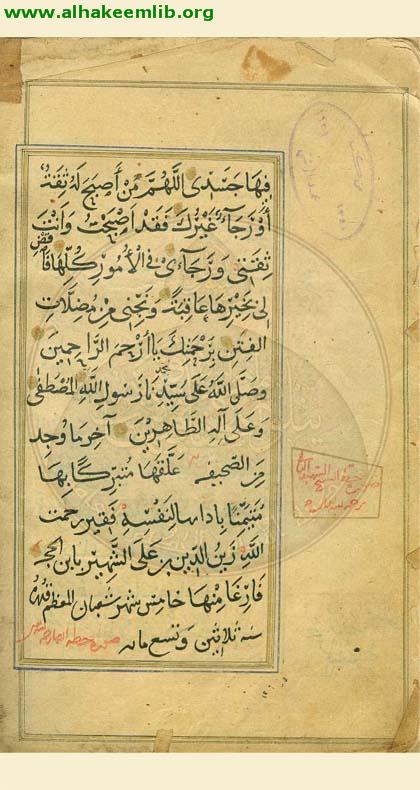 www.alhakeemlib.org
فيها جسدى اللهم من أصبح له ثقة
أو رجاء غيرك فقد اصبحت وانت
ثقتى ورجاءى فى الأمور كلها فاقض
لى بخيرها عاقبة ونجنى من مضلات
الفتن برحمتك يا أرحم الراحمين
وصلى الله على سيدنا رسول الله المصطفى
وعلى آله الطاهرين آخر ما وجد
من الصحيفة علقها متبركا بها
متيمنا بادابها لنفسه فقير رحمت
الله زين الدين بن على الشهير بابن الحجر
فارغا منها خامس شهر شعبان المعظم
سنة ثلاثين وتسع مائه